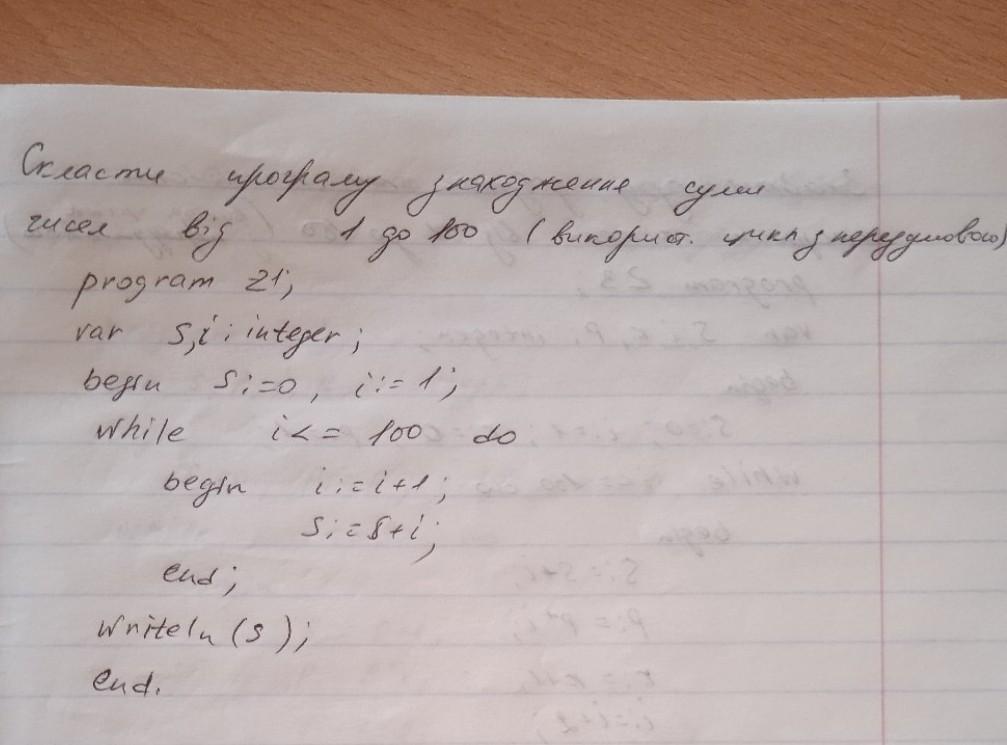 Скласти програму знаходження суми
чисел від 1 до 100 (використ. цикл з передумовою)
program Z1;
var S,i : integer;
begin S:=0, i:=1;
while i<= 100 do
begin i:=i+1;
S:=S+i;
end;
writeln (S);
end.